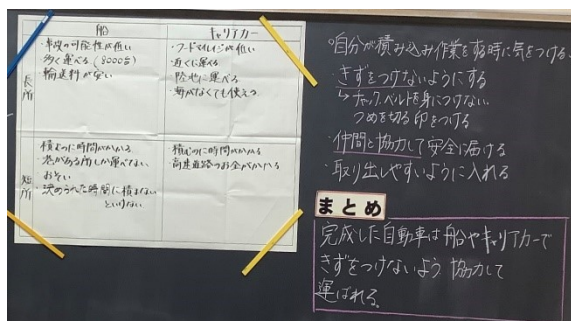 船
キャリアカー
長所
・事故の可能性が低い
多く運べる(8000台)
輸送料が安い
・フードマイレージが低い
近くに運べる
陸地に運べる
・海がなくても使える
短所
積むのに時間がかかる
・港がある所しか運べない
おそい
・決められた時間に積まない
といけない
・積むのに時間がかかる
・高速道路のお金がかかる
・自分が積み込み作業をする時に気をつける。
・きずをつけないようにする
↳チャック、ベルトを身につけない
つめを切る 印をつける
・仲間と協力して安全に届ける
・取り出しやすいように入れる
まとめ
完成した自動車は船やキャリアカーで
きずをつけないよう協力して
運ばれる。